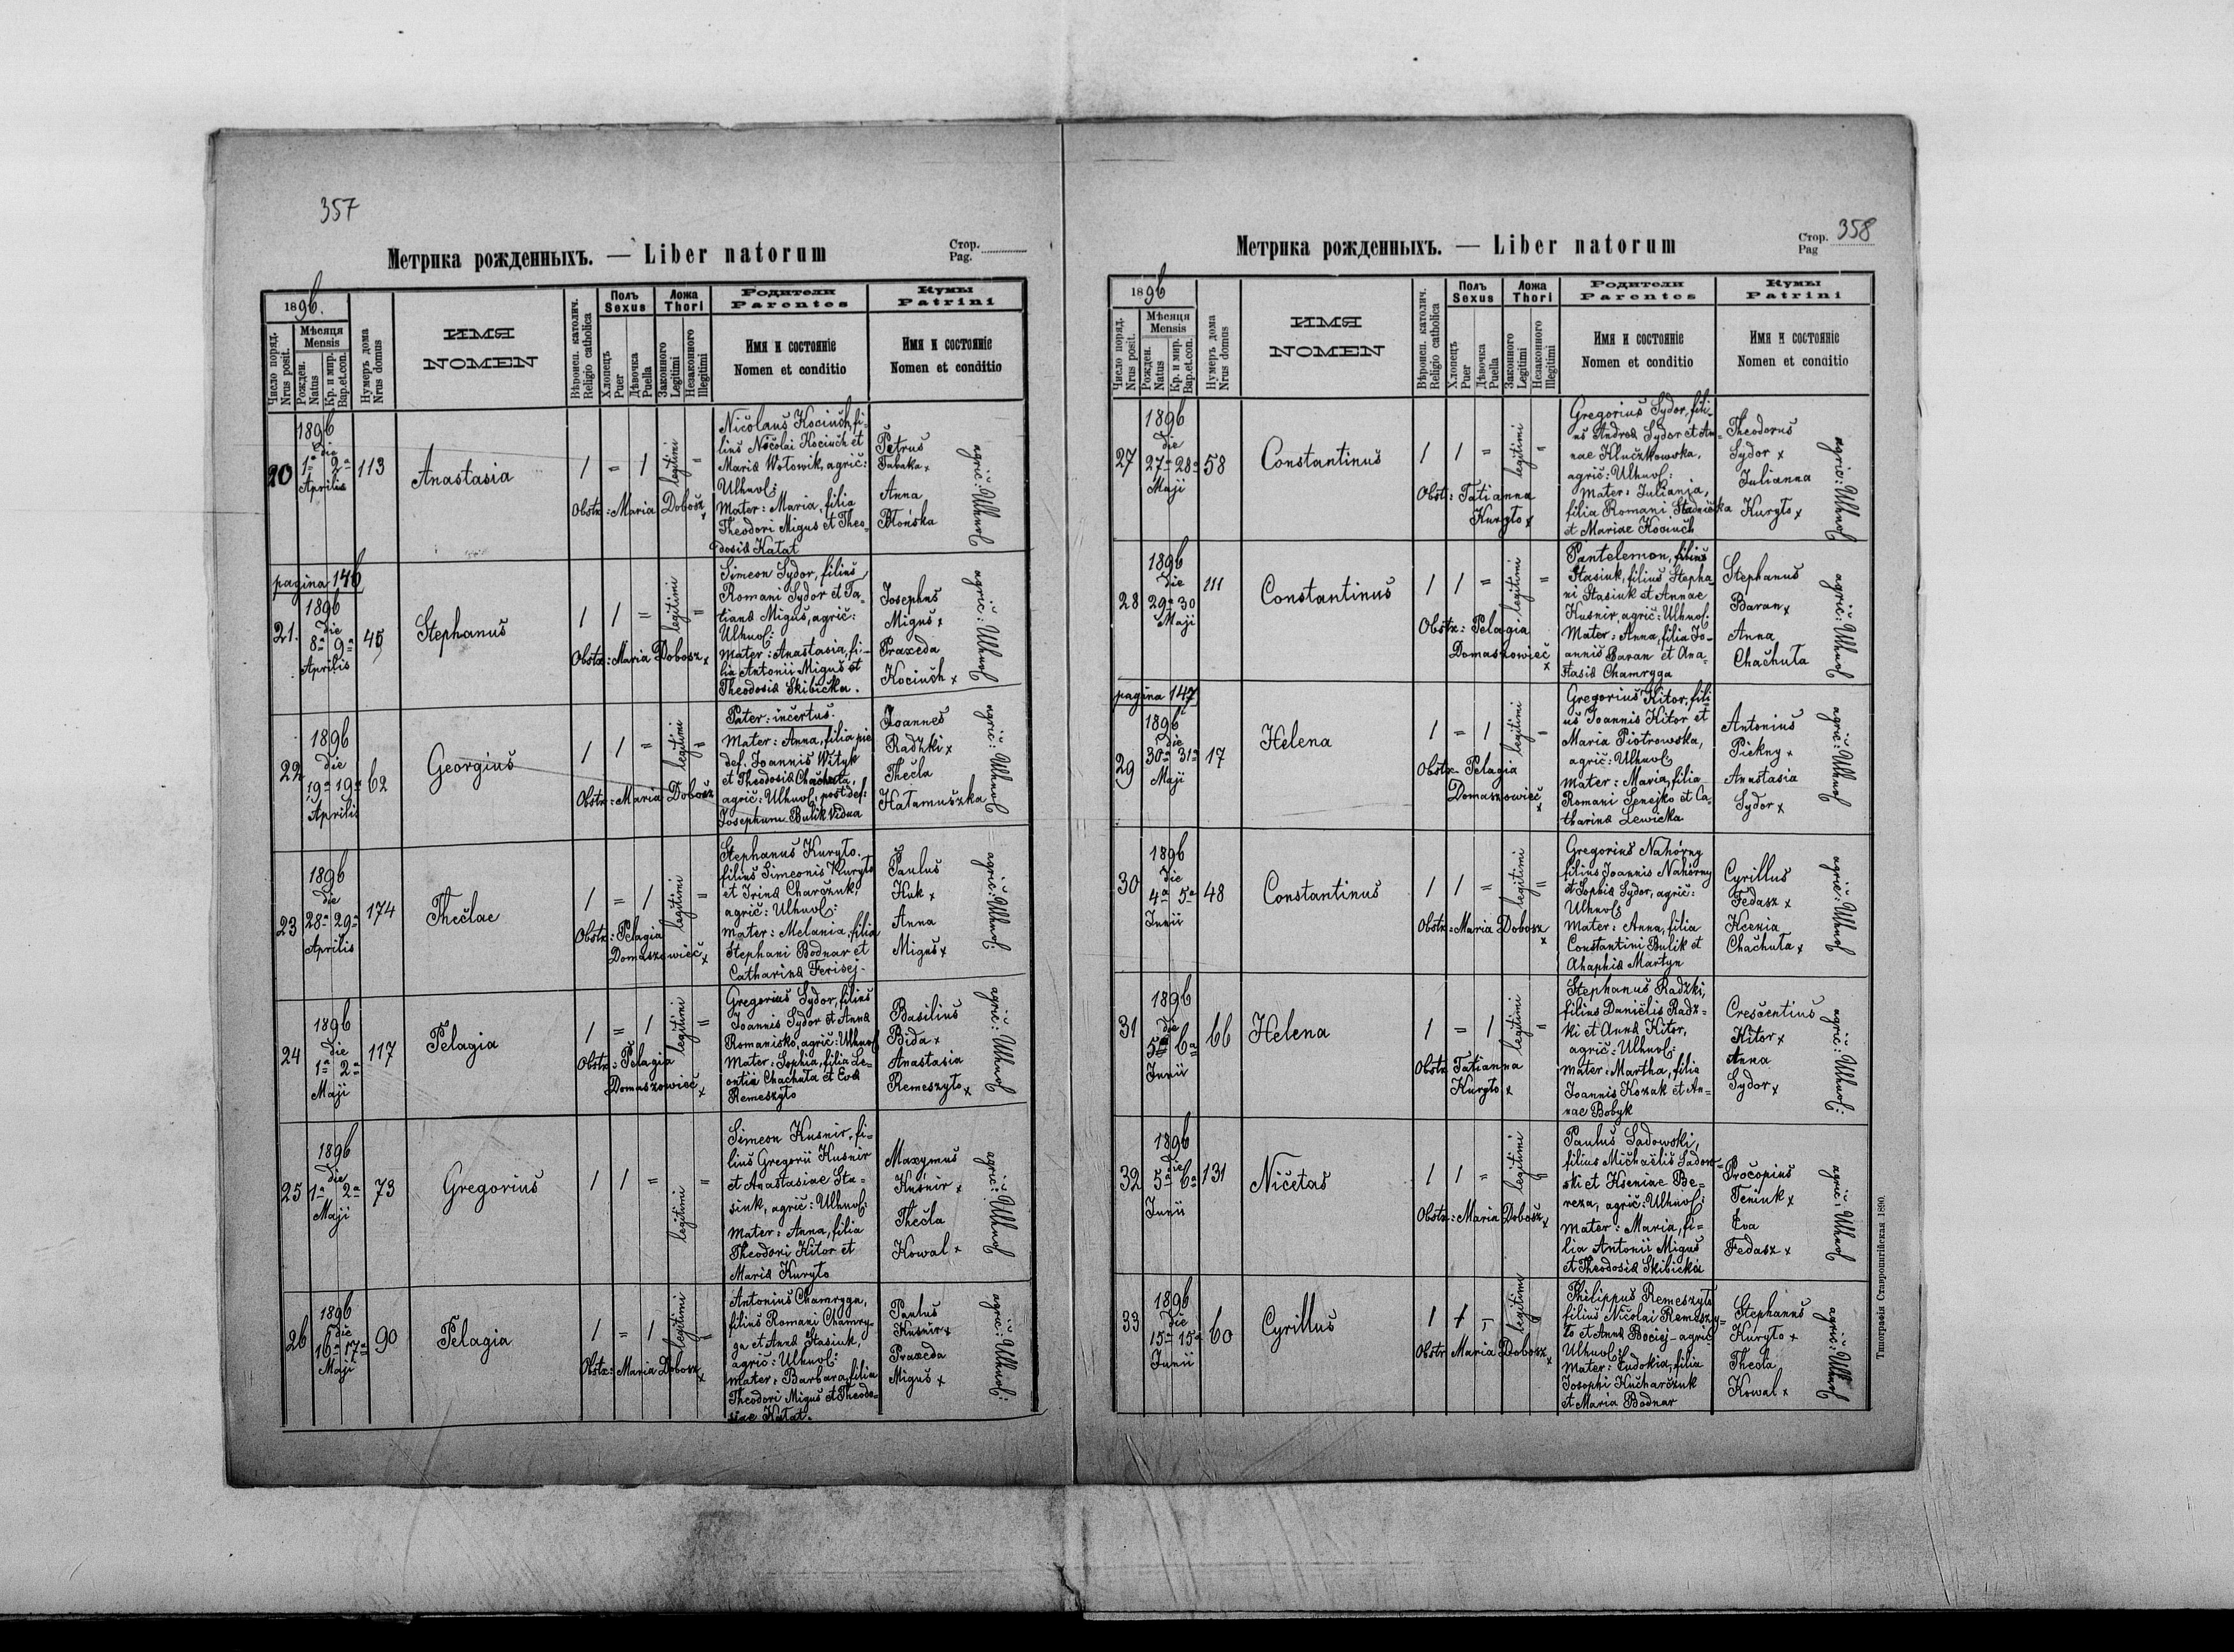 357
Метрика рожденныхъ. — Liber natorum
Стор.
Pag.
1896.
Число поряд.
Nrus posit.
Мѣсяця
Mensis
Рожден.
Natus
Кр. и мир.
Bap.et.con.
Нумеръ дома
Nrus domus
ИМЯ
NOMEN
Вѣроисп. католич.
Religio catholica
Полъ
Sexus
Хлопецъ
Puer
Дѣвочка
Puella
Ложа
Thori
Законного
Legitimi
Незаконного
Illegitimi
Родители
Parentes
Имя и состояніе
Nomen et conditio
Кумы
Patrini
Имя и состояніе
Nomen et conditio
20
1896
die
1a 2a
Aprilis
113
Anastasia
1 = 1 legitimi =
Obstx: Maria Dobosz x
Nicolaus Kociuch, fi-
lius Nicolai Kociuch et
Maria Wołowik, agric:
Uhnov:
Mater: Maria, filia
Theodori Migus et Theo-
dosia Katat
Petrus
Tabaka x
Anna
Błońska
agric: Uhnov
pagina 146
21.
1896
die
8a 9a
Aprilis
45
Stephanus
1 1 = legitimi =
Obstx: Maria Dobosz x
Simeon Sydor, filius
Romani Sydor et Ta-
tiana Migus, agric:
Uhnov:
Mater: Anastasia, fi-
lia Antonii Migus et
Theodosia Skibicka.
Josephus
Migus x
Praxeda
Kociuch x
agric: Uhnov
22
1896
die
19a 19a
Aprilis
62
Georgius
1 1 = legitimi =
Obstx: Maria Dobosz
Pater: incertus.
Mater: Anna, filia pie
def. Joannis Wityk
et Theodosia Chachuta,
agric: Uhnov: post def:
Josephum Bulik vidua
Joannes
Radzki x
Thecla
Hałamuszka
agric: Uhnov
23
1896
die
28a 29a
Aprilis
174
Theclae
1 = 1 legitimi =
Obstx: Pelagia
Domaszowiec x
Stephanus Kuryło.
filius Simeonis Kuryło
et Irina Charczuk,
agric: Uhnov:
Mater: Melania, filia
Stephani Bodnar et
Catharina Ferisej.
Paulus
Huk x
Anna
Migus x
agric: Uhnov:
24
1896
die
1a 2a
Maji
117
Pelagia
1 = 1 legitimi =
Obstx: Pelagia
Domaszowiec x
Gregorius Sydor, filius
Joannis Sydor et Anna
Romanisko, agric: Uhnov
Mater: Sophia, filia Le-
ontia Chachuta et Eva
Remeszyło
Basilius
Bida x
Anastasia
Remeszyło x
agric: Uhnov
25
1896
die
1a 2a
Maji
73
Gregorius
1 1 = legitimi =
Simeon Kusnir, fi-
lius Gregorii Kusnir
et Anastasiae Sta-
siuk, agric: Uhnov:
Mater: Anna, filia
Theodori Kitor et
Maria Kuryło
Maxymus
Kusnir x
Thecla
Kowal x
agric: Uhnov
26
1896
die
16a 17a
Maji
90
Pelagia
1 = 1 legitimi =
Obstx: Maria Dobosz x
Antonius Chamryga,
filius Romani Chamry-
ga et Anna Stasiuk,
agric: Uhnov:
Mater: Barbara, filia
Theodori Migus et Theodo-
siae Katat.
Paulus
Kusnir x
Praxeda
Migus x
agric: Uhnov:
Метрика рожденныхъ. — Liber natorum
Стор.
Pag
358
1896
Число поряд.
Nrus posit.
Мѣсяця
Mensis
Рожден.
Natus
Кр. и мир.
Bap.et.con.
Нумеръ дома
Nrus domus
ИМЯ
NOMEN
Вѣроисп. католич.
Religio catholica
Полъ
Sexus
Хлопецъ
Puer
Дѣвочка
Puella
Ложа
Thori
Законного
Legitimi
Незаконного
Illegitimi
Родители
Parentes
Имя и состояніе
Nomen et conditio
Кумы
Patrini
Имя и состояніе
Nomen et conditio
27
1896
die
27a 28a
Maji
58
Constantinus
1 1 = legitimi =
Obstx: Tatianna
Kuryło x
Gregorius Sydor, fili-
us Andrea Sydor et An-
nae Kluczkowska,
agric: Uhnov:
Mater: Juliania,
filia Romani Stadnicka
et Mariae Kociuch
Theodorus
Sydor x
Julianna
Kuryło x
agric: Uhnov
28
1896
die
29a 30
Maji
111
Constantinus
1 1 = legitimi =
Obstx: Pelagia
Domaszowiec x
Pantelemon, filius
Stasiuk, filius Stepha-
ni Stasiuk et Annae
Kusnir, agric: Uhnov:
Mater: Anna, filia Jo-
annis Baran et Ana-
stasia Chamryga
Stephanus
Baran x
Anna
Chachuła
agric: Uhnov
pagina 147
29
1896
die
30a 31a
Maji
17
Helena
1 = 1 legitimi =
Obstx Pelagia
Domaszowiec x
Gregorius Kitor, fili-
us Joannis Kitor et
Maria Piotrowska,
agric: Uhnov:
Mater: Maria, filia
Romani Senejko et Ca-
tharina Lewicka
Antonius
Piekny x
Anastasia
Sydor x
agric: Uhnov
30
1896
die
4a 5a
Junii
48
Constantinus
1 1 = legitimi =
Obstx: Maria Dobosz x
Gregorius Nahórny
filius Joannis Nahórny
et Sophia Sydor, agric:
Uhnov:
Mater: Anna, filia
Constantini Bulik et
Ahaphia Martyn
Cyrillus
Fedasz x
Kcenia
Chachuła x
agric: Uhnov
31
1896
die
5a 6a
Junii
66
Helena
1 = 1 legitimi =
Obstx Tatianna
Kuryło x
Stephanus Radzki,
filius Danielis Radz-
ki et Anna Kitor,
agric: Uhnov:
Mater: Martha, filia
Joannis Kozak et An-
nae Bobyk
Crescentius
Kitor x
Anna
Sydor x
agric: Uhnov:
32
1896
die
5a 6a
Junii
131
Nicetas
1 1 = legitimi =
Obstx: Maria Dobosz x
Paulus Sadowski,
filius Michaelis Sadow-
ski et Kseniae Be-
reza, agric: Uhnov:
Mater: Maria, fi-
lia Antonii Migus
et Theodosia Skibicka
Procopius
Teniuk x
Eva
Fedasz x
agric: Uhnov
33
1896
die
15a 15a
Junii
60
Cyrillus
1 1 = legitimi =
Obstx Maria Dobosz x
Philippus Remeszyło
filius Nicolai Remeszy-
ło et Anna Bociej - agric:
Uhnov:
Mater: Eudokia, filia
Josephi Kucharczuk
et Maria Bodnar
Stephanus
Kuryło x
Thecla
Kowal x
agric: Uhnov
Типографія Ставропигійская 1890.